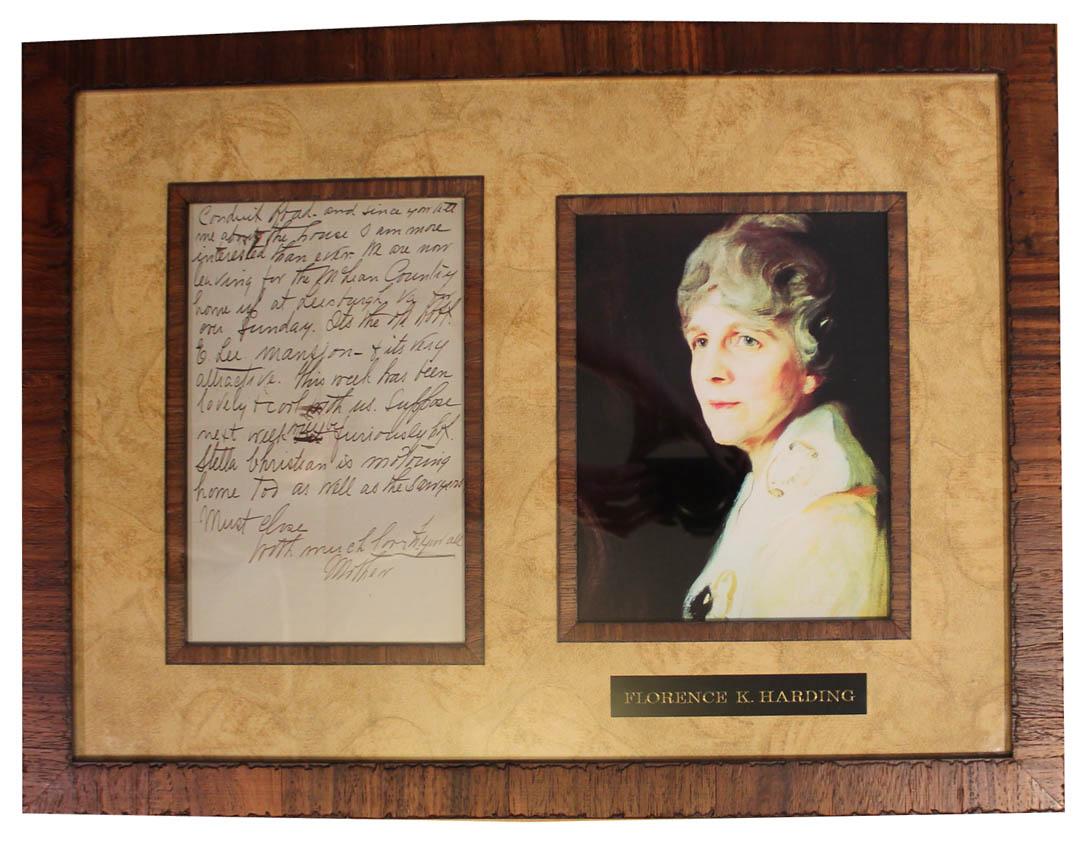 Conduit Road - and since you tell
me about the house I am more
interested than ever. We are now
leaving for the McLean Country
home up at Leesburgh, Va
over Sunday. Its the old Robt.
E Lee mansion - & its very
attractive. This week has been
lovely & cool with us. Suppose
next week furiously
Stella Christian is motoring
home too as well as the Sawyers
Must close
With much love to you all
Mother
FLORENCE K. HARDING